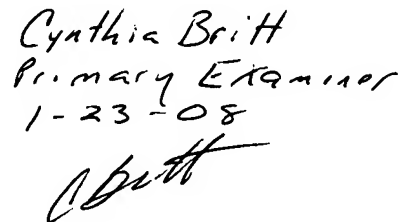 Cynthia Britt
Primary Examiner
1-23-08
C Britt